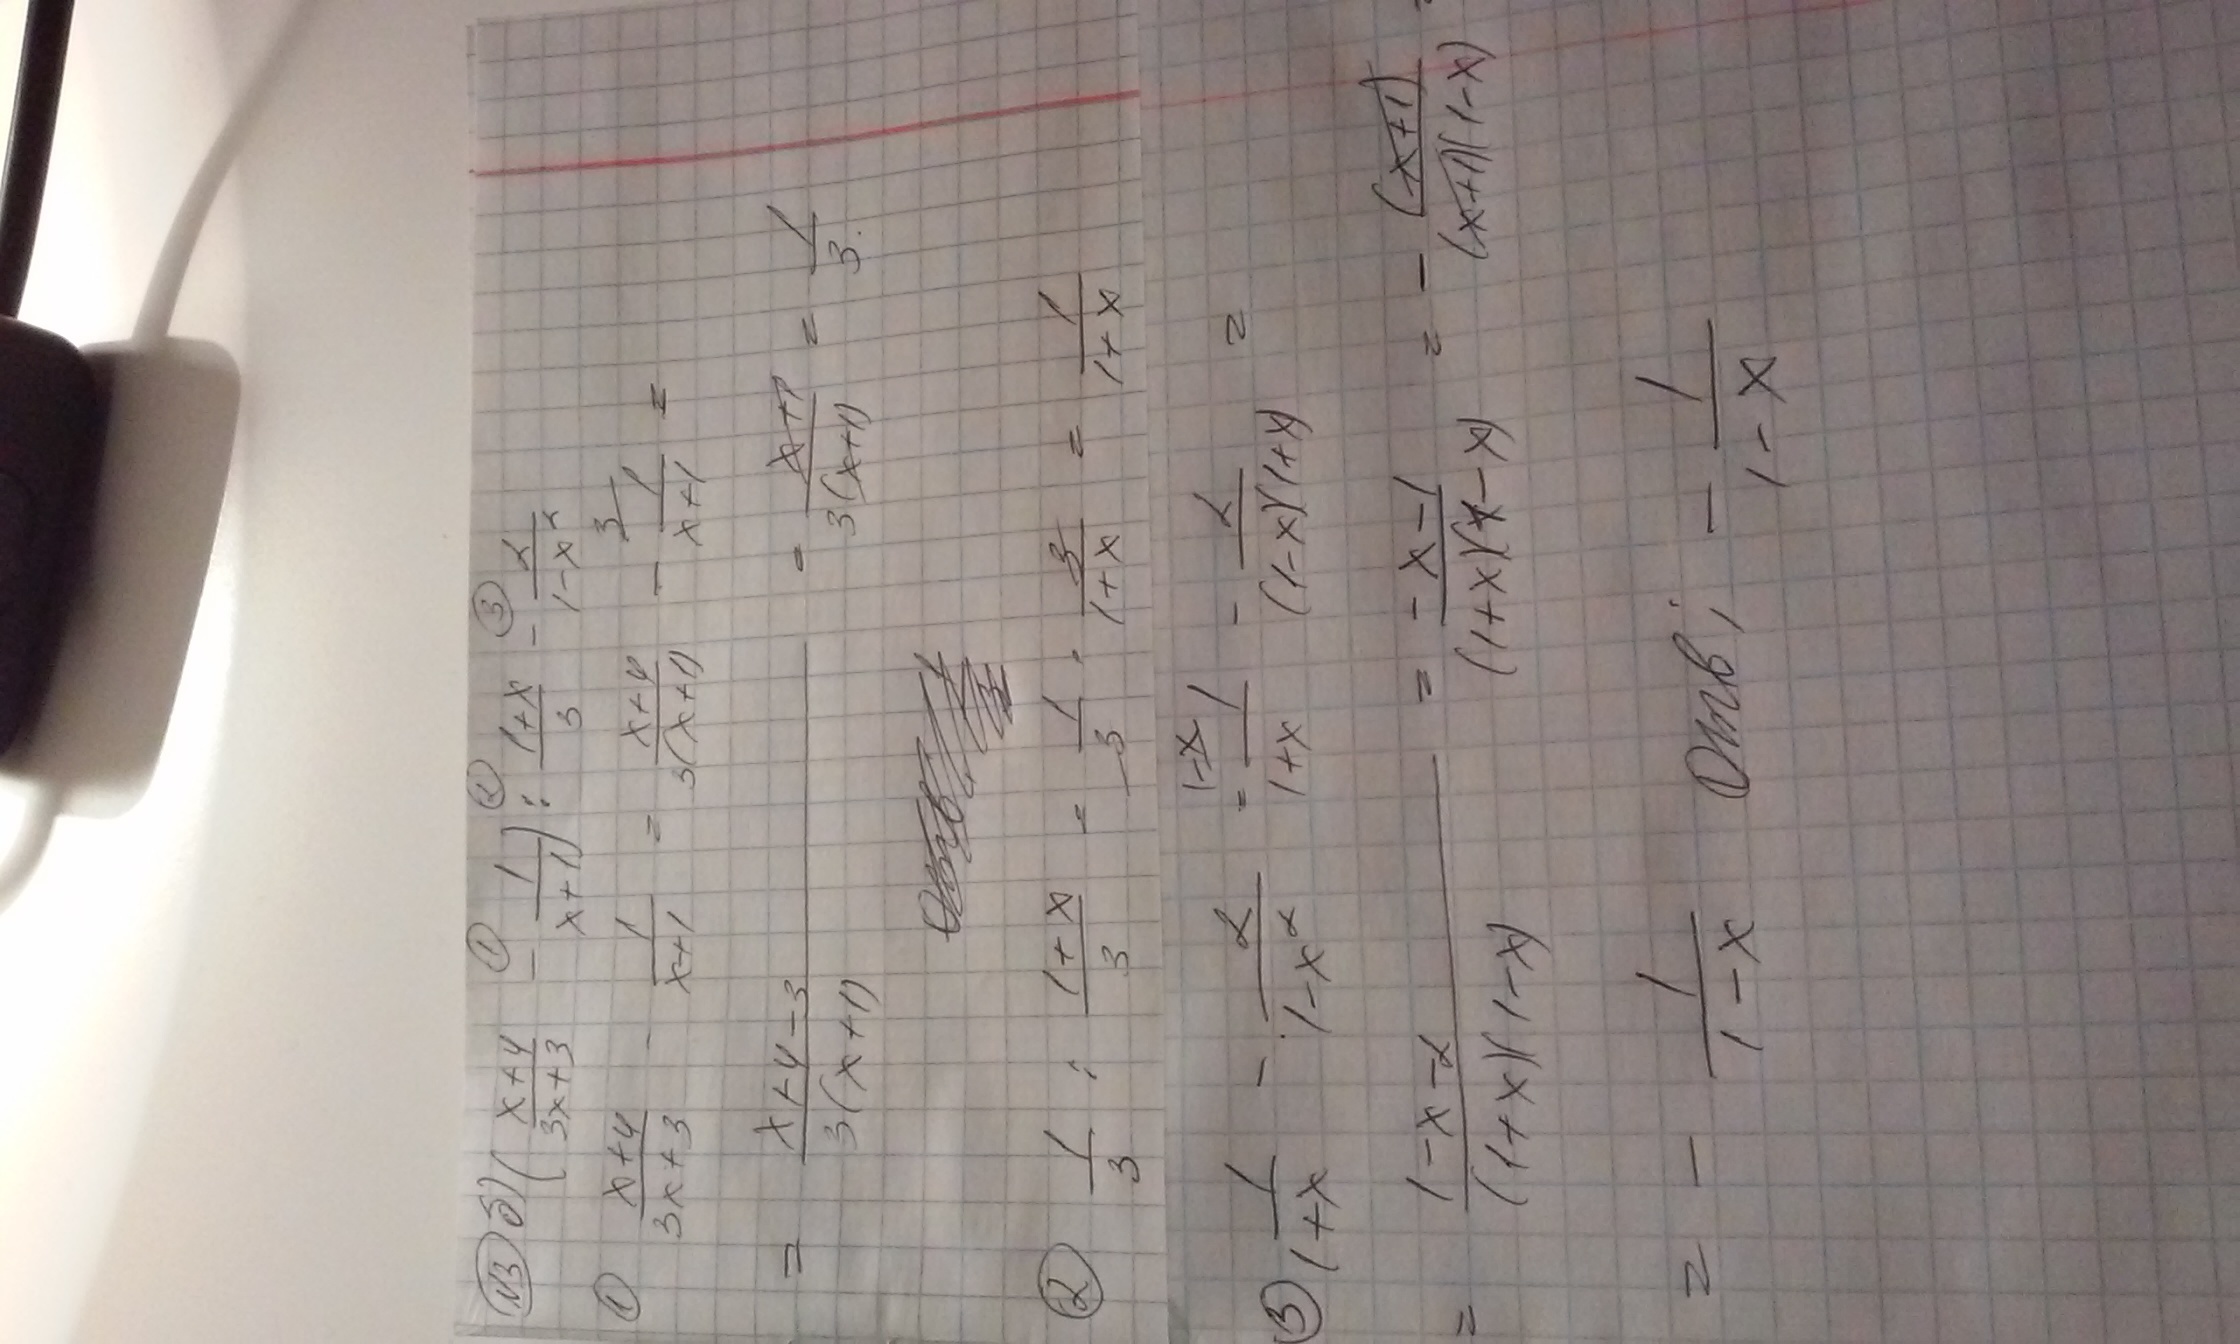 №3 б) ((x+4)/(3x+3) - 1/(x+1)) : (1+x)/3 - 2/(1-x²)
① ② ③
① (x+4)/(3x+3) - 1/(x+1) = (x+4)/(3(x+1)) - 1/(x+1) ^3 =
= (x+4-3)/(3(x+1)) = (x+1)/(3(x+1)) = 1/3.
② 1/3 : (1+x)/3 = 1/3 · 3/(1+x) = 1/(1+x)
③ 1/(1+x) - 2/(1-x²) = ^(1-x) 1/(1+x) - 2/((1-x)(1+x)) =
= (1-x-2)/((1+x)(1-x)) = (-x-1)/((1+x)(1-x)) = - (x+1)/((x+1)(1-x)) =
= - 1/(1-x) Отв; - 1/(1-x)